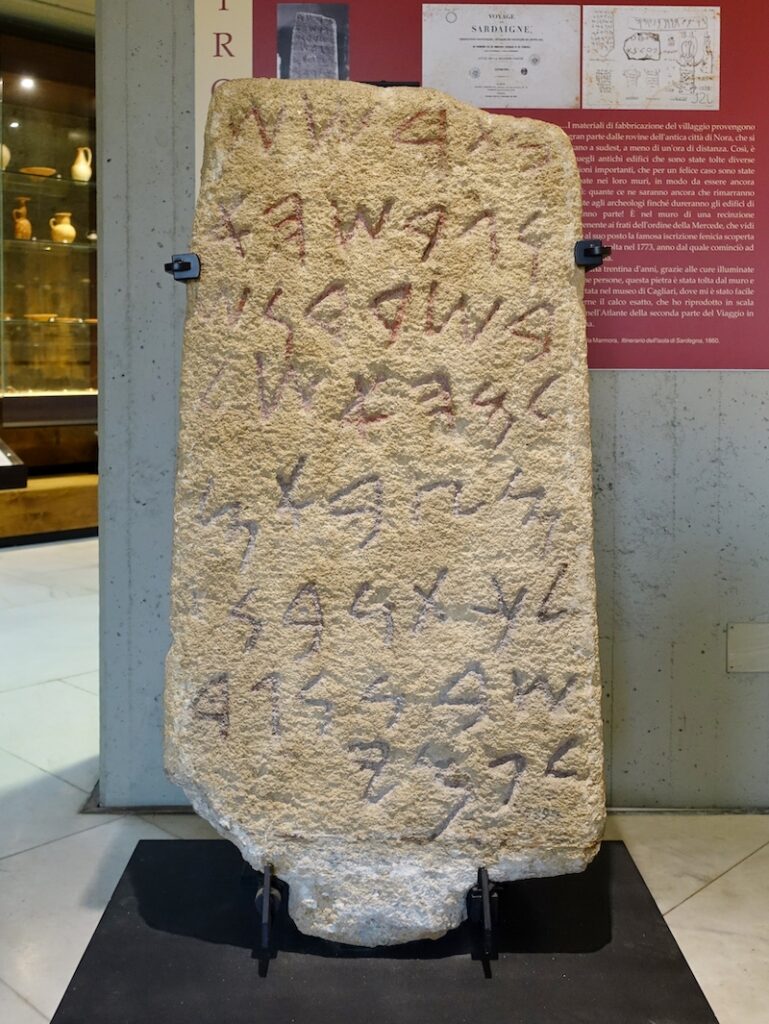 VOYAGE
SARDAIGNE,
I materiali di fabbricazione del villaggio provengono
gran parte dalle rovine dell'antica città di Nora, che si
a sudest, a meno di un'ora di distanza. Così, è
antichi edifici che sono state tolte diverse
importanti, che per un felice caso sono state
nei loro muri, in modo da essere ancora
quante ce ne saranno ancora che rimarranno
agli archeologi finché dureranno gli edifici di
parte! È nel muro di una recinzione
ai frati dell'ordine della Mercede, che vidi
al suo posto la famosa iscrizione fenicia scoperta
nel 1773, anno dal quale cominciò ad
trentina d'anni, grazie alle cure illuminate
persone, questa pietra è stata tolta dal muro e
nel museo di Cagliari, dove mi è stato facile
il calco esatto, che ho riprodotto in scala
nell'Atlante della seconda parte del Viaggio in
Marmora, Itinerario dell'isola di Sardegna, 1860.
𐤁𐤕𐤓𐤔𐤔
𐤅𐤂𐤓𐤔𐤄𐤀
𐤁𐤔𐤓𐤃𐤍𐤔
𐤋𐤌𐤄𐤀𐤔𐤋
𐤌𐤑𐤁𐤀𐤌
𐤋𐤊𐤕𐤍𐤁𐤍
𐤔𐤁𐤍𐤍𐤂𐤃
𐤋𐤐𐤌𐤉